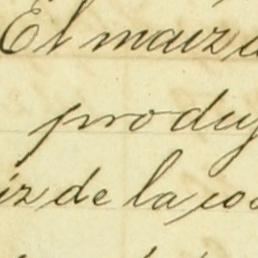 El maiz
produj
iz de la co